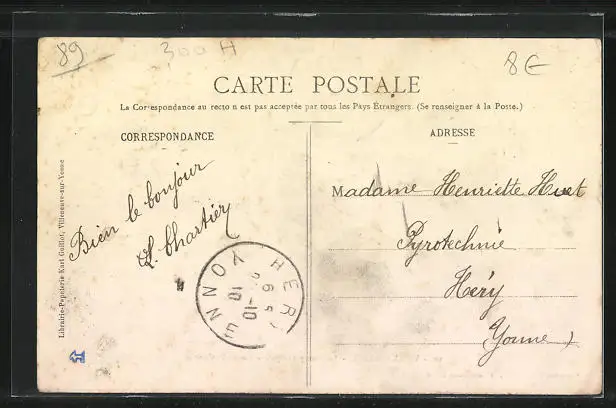 89
300 H
8€
CARTE POSTALE
La Correspondance au recto n est pas acceptée par tous les Pays Étrangers. (Se renseigner à la Poste.)
CORRESPONDANCE
ADRESSE
Librairie-Papeterie Karl Guillot, Villeneuve-sur-Yonne
Bien le bonjour
L. Chartier
Madame Henriette Huet
Pyrotechnie
Héry
Yonne
HERY
YONNE
10